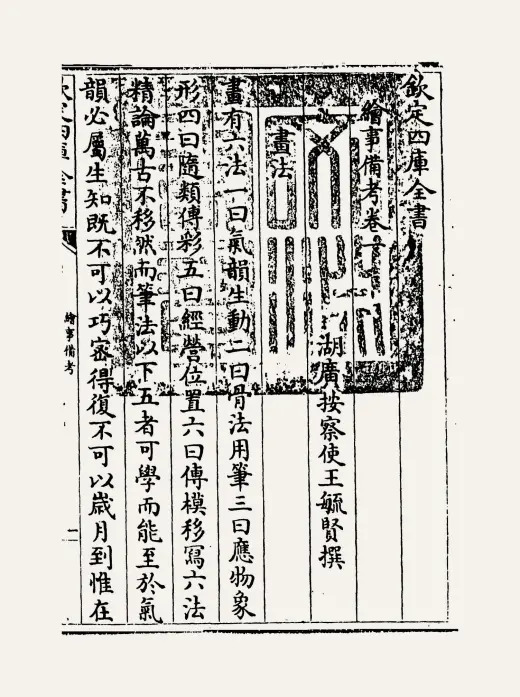 欽定四庫全書
繪事備考卷一
湖廣按察使王毓賢撰
畫法
畫有六法一曰氣韻生動二曰骨法用筆三曰應物象
形四曰隨類傳彩五曰經營位置六曰傳模移寫六法
精論萬古不移然而筆法以下五者可學而能至於氣
韻必屬生知既不可以巧宻得復不可以歳月到惟在
欽定四庫全書
繪事備考
一